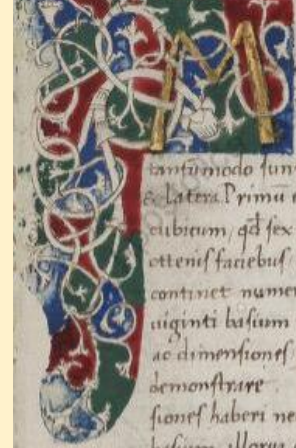 M
tantũmodo sun
& latera. Primũ
cubicum, qđ sex
ottenis faciebus
continet numer
uiginti basium
ac dimensiones
demonstrare
siones haberi ne
basium illorum